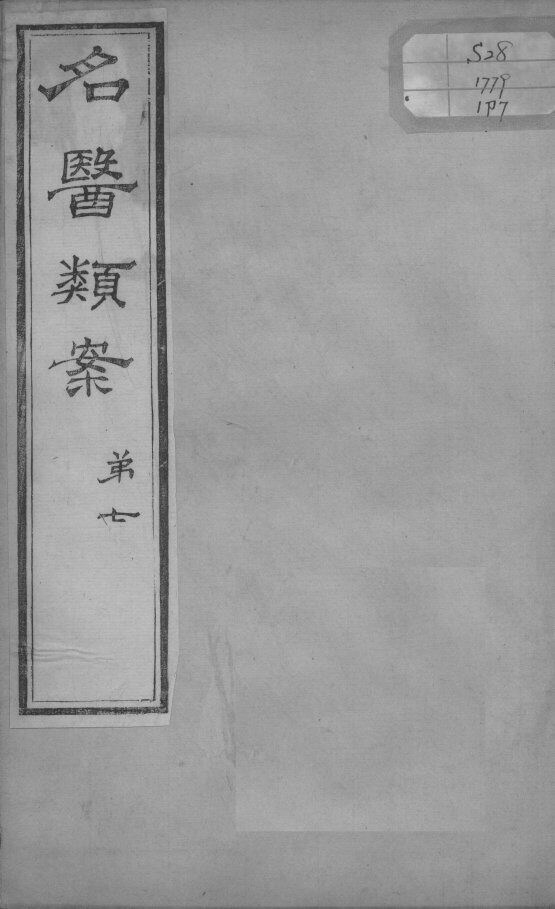 名醫類案
弟七
528
1779
1P7